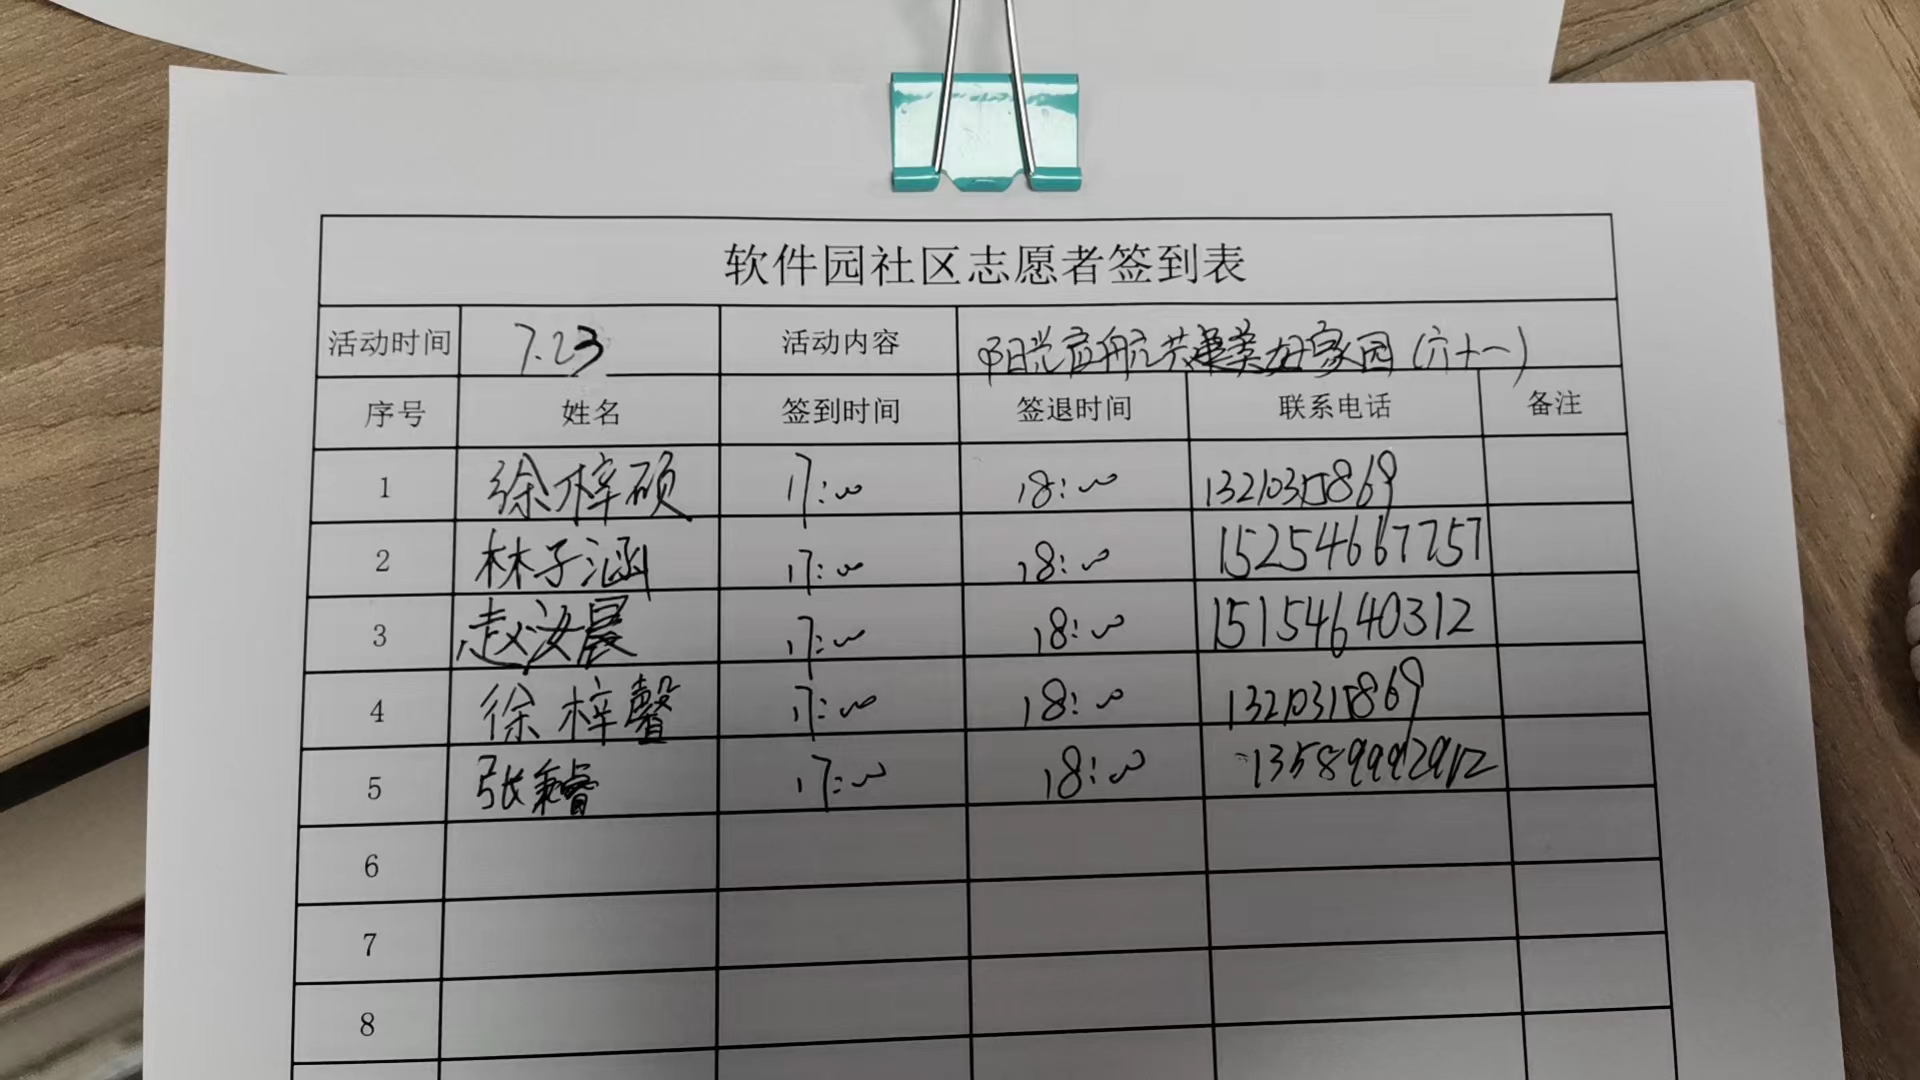 软件园社区志愿者签到表
活动时间 7.23 活动内容 阳光启航共建美好家园(六十一)
序号 姓名 签到时间 签退时间 联系电话 备注
1 徐梓硕 17:00 18:00 13210315869
2 林子涵 17:00 18:00 15254667757
3 赵汝晨 17:00 18:00 15154640312
4 徐梓馨 17:00 18:00 13210315869
5 张秉睿 17:00 18:00
6
7
8